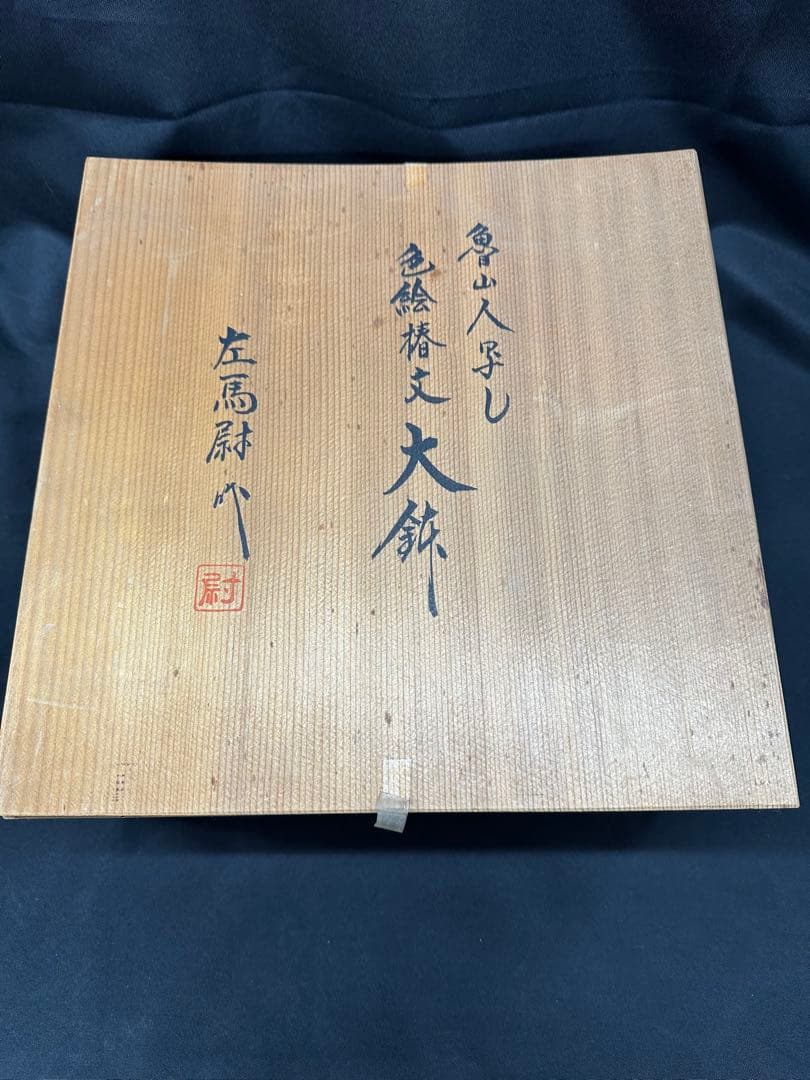 魯山人写し
色絵椿文大鉢
左馬尉作
尉